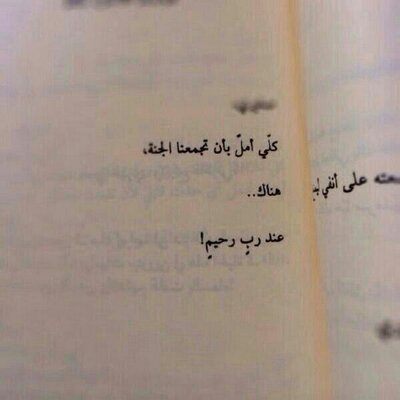 كلّي أملٌ بأن تجمعنا الجنة،
هناك..
عند ربٍ رحيمٍ!
على أنفي